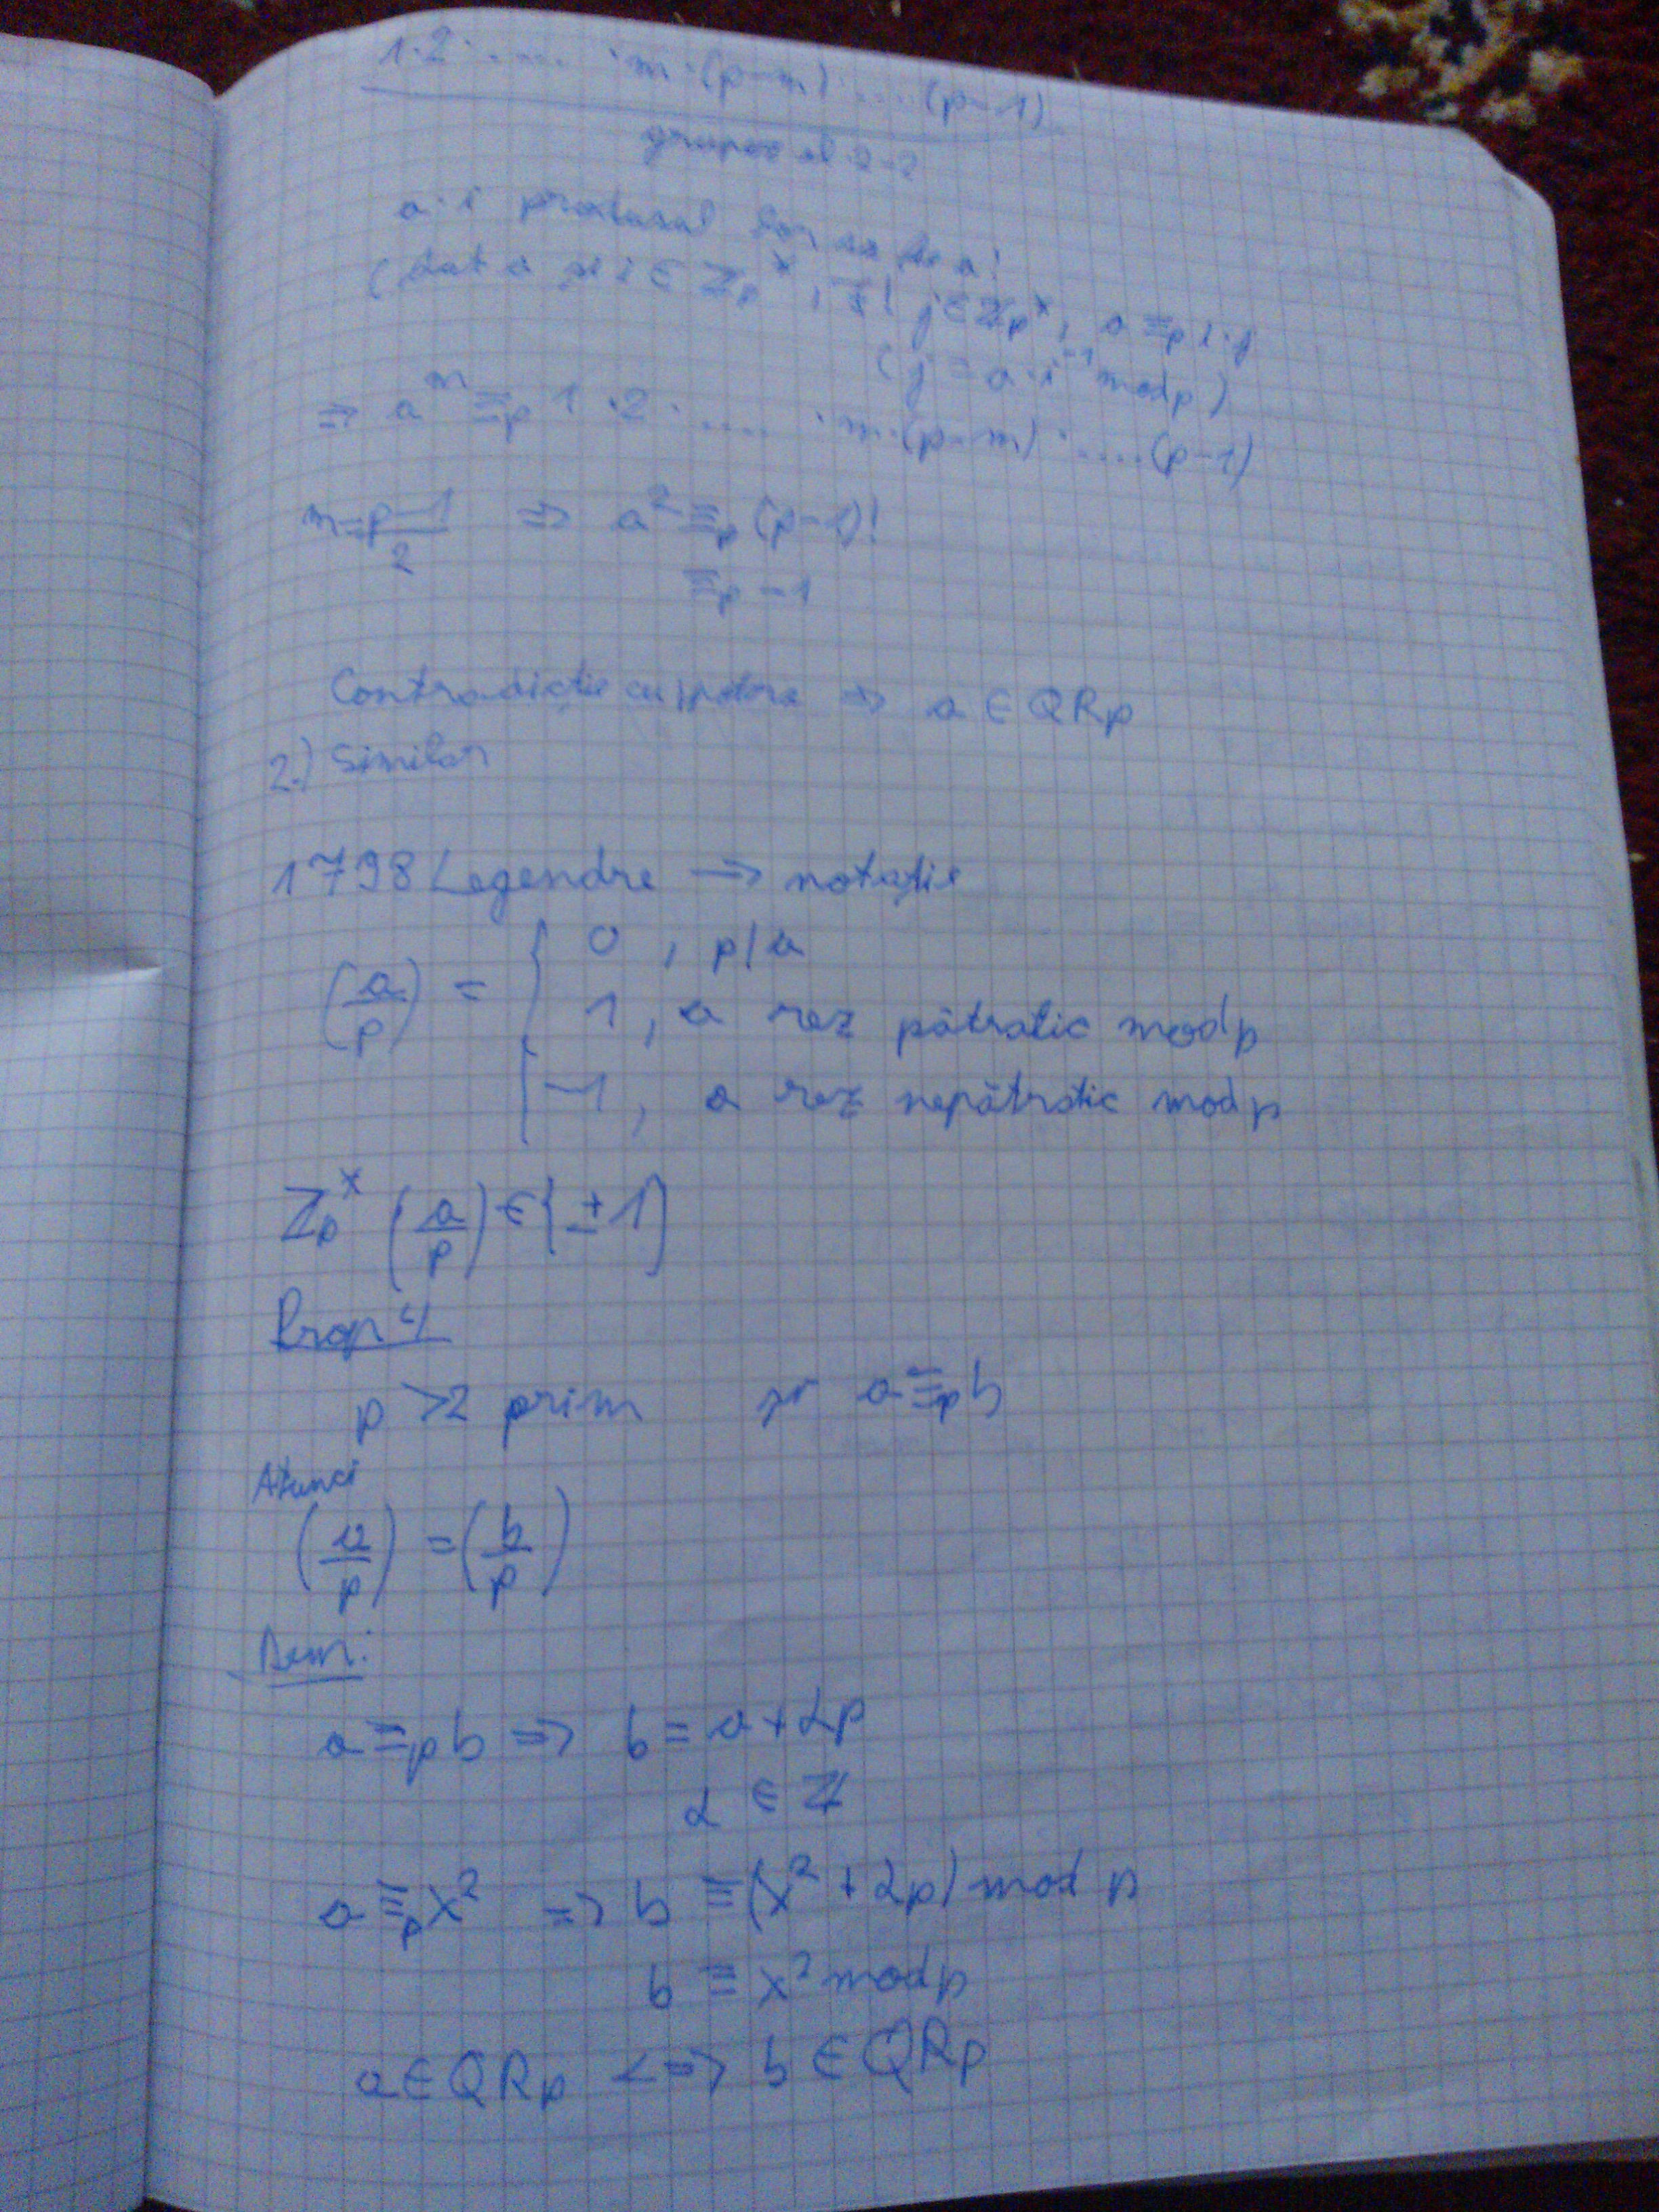 1·2·.....·m·(p-m)·....(p-1)
grupez al 2-2
a.i produsul lor sa fie a!
(dat a si i∈Zp^x, ∃! j∈Zp^x, a ≡p i·j
(j = a·i^-1 mod p)
=> a^m ≡p 1·2·.....·m·(p-m)·....(p-1)
m=(p-1)/2 => a^2 ≡p (p-1)!
≡p -1
Contradicție cu => a ∈ QRp
2.) Similar
1798 Legendre => notație
(a/p) = { 0, p|a
1, a rez pătratic mod p
-1, a rez nepătratic mod p
Zp^x (a/p) ∈ {±1}
Prop 4
p >2 prim și a ≡p b
Atunci
(a/p) = (b/p)
Dem:
a ≡p b => b = a + αp
α ∈ Z
a ≡p x² => b ≡ (x² + αp) mod p
b ≡ x² mod p
a∈QRp <=> b∈QRp